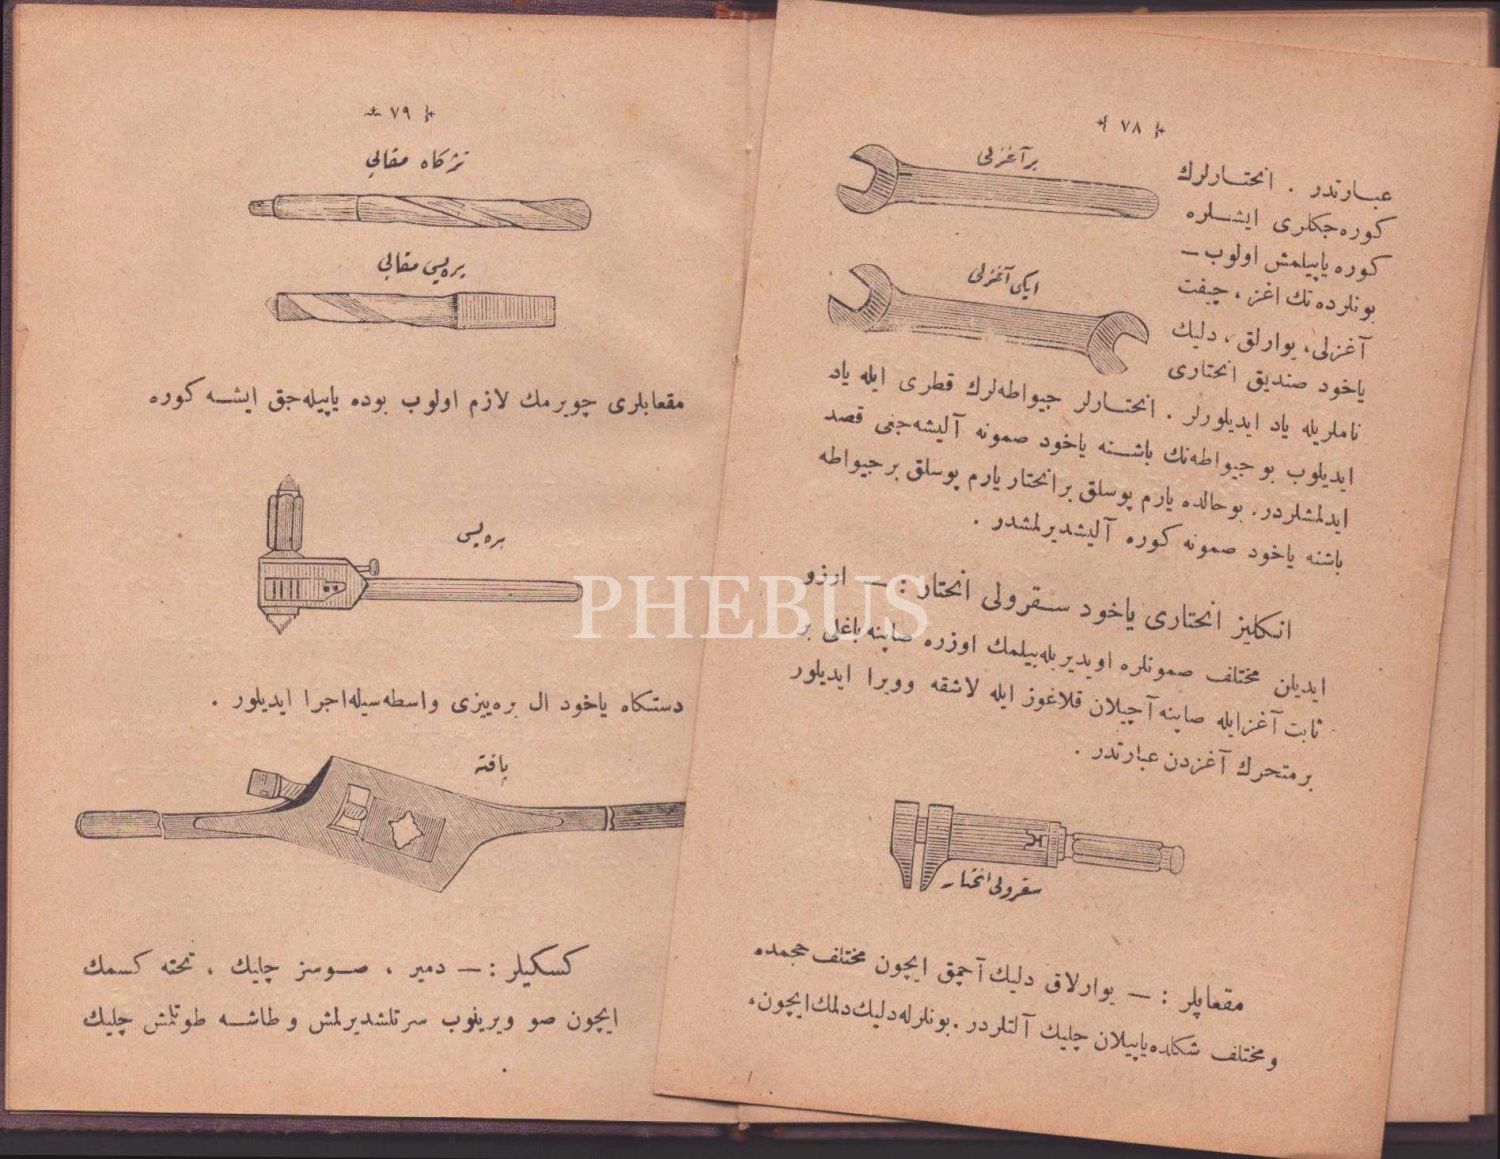 ﴾ ٧٨ ﴿
بر آغزلی
عبـارتدر . انختـارلرك
كوره‌جكلری ايشـلره
ايكی آغزلی
كوره ياپيلمش اولوب ـ
بونلرده تك اغز ، چيفت
آغزلی، يوارلق ، دليك
ياخود صنديق انختاری
ناملريله ياد ايديلورلر . انختـارلر جيواطه‌لرك قطری ايله ياد
ايديلوب بو جيواطه‌نك باشـنه ياخود صمونه آليشه‌جغی قصد
ايدلمشلردر. بوحالده يارم پوسلق برانختار يارم پوسلق برجيواطه
باشنه ياخود صمونه كوره آليشديرلمشدر .
انكليز انختاری ياخود سـقرولی انختار : ـ ارزو
ايديلن مختلف صمونلره اويديريله‌بيلمك اوزره صاپنه باغلی بر
ثابت آغزايله صاپنه آچيلان قلاغوز ايله لاشقه وويرا ايديلور
برمتحرك آغزدن عبارتدر .
سقرولی انختار
مقعاپلر : ـ يوارلاق دليك آچمق ايچون مختلف حجمده
و مختلف شكلده ياپيلان چليك آلتلردر .بونلرله دليك دلمك ايچون،
﴾ ٧٩ ﴿
تزكاه مقابی
بره‌یسی مقابی
مقعابلری چويرمك لازم اولوب بوده ياپيله‌جق ايشـه كوره
بره‌یسی
دستكاه ياخود ال بره‌ييزی واسطه‌سيله اجرا ايديلور .
پافته
كسكيلر : ـ دمير ، صـوسز چليك ، تخته كسمك
ايچون صو ويريلوب سرتلشديرلمش و طاشـه طوتلمش چليك
PHEBUS